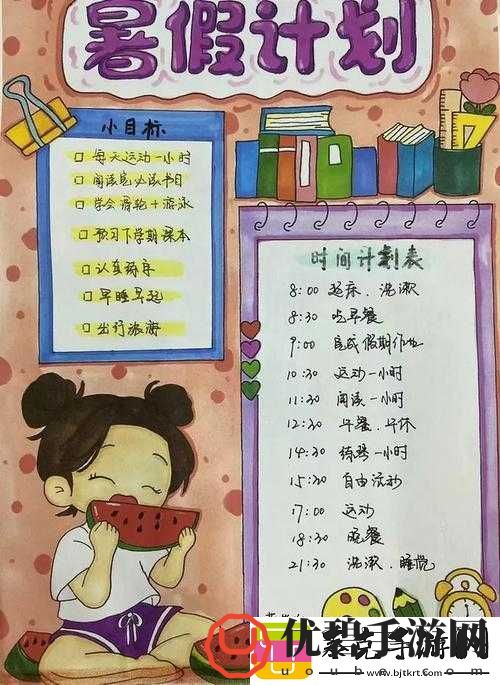 暑假计划
小目标
□ 每天运动一小时
□ 阅读完必读书目
□ 学会滑轮+游泳
□ 预习下学期课本
□ 认真练琴
□ 早睡早起
□ 出行旅游
时间计划表
8:00 起床、洗漱
8:30 吃早餐
9:00 完成假期作业
10:30 运动一小时
11:30 阅读一小时
12:30 午餐、午休
14:30 练琴一小时
15:30 自由活动
17:00 运动
18:30 晚餐
21:30 洗漱、睡觉
优碧手游网
www.bjtkrt.com